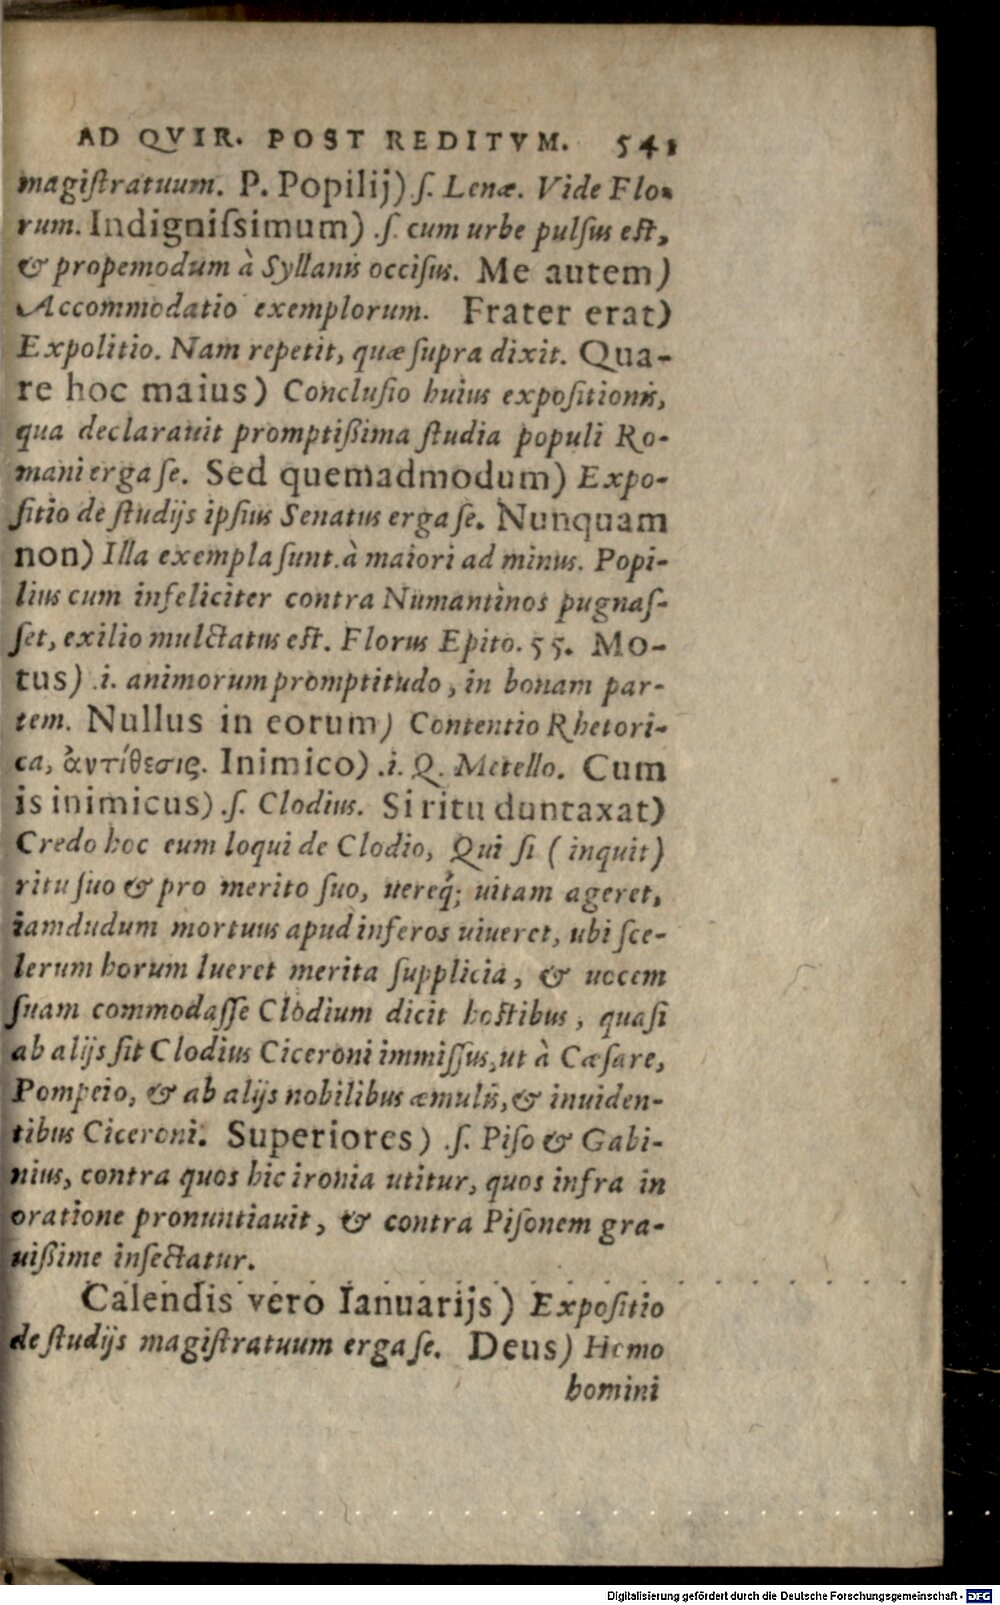 AD QVIR. POST REDITVM. 541
magiſtratuum. P. Popilij) ſ. Lenæ. Vide Flo-
rum. Indigniſsimum) .ſ. cum urbe pulſus eſt,
& propemodum à Syllanis occiſus. Me autem)
Accommodatio exemplorum. Frater erat)
Expolitio. Nam repetit, quæ ſupra dixit. Qua-
re hoc maius) Concluſio huius expoſitionis,
qua declarauit promptißima ſtudia populi Ro-
mani erga ſe. Sed quemadmodum) Expo-
ſitio de ſtudijs ipſius Senatus erga ſe. Nunquam
non) Illa exempla ſunt à maiori ad minus. Popi-
lius cum infeliciter contra Numantinos pugnaſ-
ſet, exilio mulctatus eſt. Florus Epito. 55. Mo-
tus) .i. animorum promptitudo, in bonam par-
tem. Nullus in eorum) Contentio Rhetori-
ca, ἀντίθεσις. Inimico) .i. Q. Metello. Cum
is inimicus) .ſ. Clodius. Si ritu duntaxat)
Credo hoc eum loqui de Clodio, Qui ſi (inquit)
ritu ſuo & pro merito ſuo, uereq́; uitam ageret,
iamdudum mortuus apud inferos uiueret, ubi ſce-
lerum horum lueret merita ſupplicia, & uocem
ſuam commodaſſe Clodium dicit hoſtibus, quaſi
ab alijs ſit Clodius Ciceroni immiſſus, ut à Cæſare,
Pompeio, & ab alijs nobilibus æmulis, & inuiden-
tibus Ciceroni. Superiores) .ſ. Piſo & Gabi-
nius, contra quos hic ironia utitur, quos infra in
oratione pronuntiauit, & contra Piſonem gra-
uißime inſectatur.
Calendis vero Ianuarijs) Expoſitio
de ſtudijs magiſtratuum erga ſe. Deus) Homo
homini
Digitalisierung gefördert durch die Deutsche Forschungsgemeinschaft - DFG